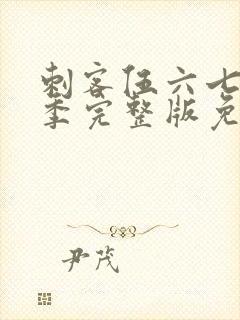 刺客伍六七
季完整版免
尹茂